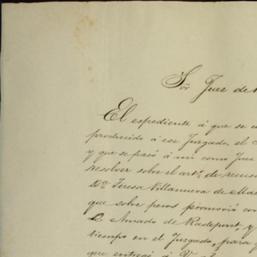 Sor Juez de
El espediente á que se
producido á ese Juzgado, el
y que se pasó á mi como Juez
resolver sobre el artº. de recus
Dª. Teresa Villanueva de
que sobre pesos promovió con
D. Amado de
tiempo en el Juzgado, para
que entregó á